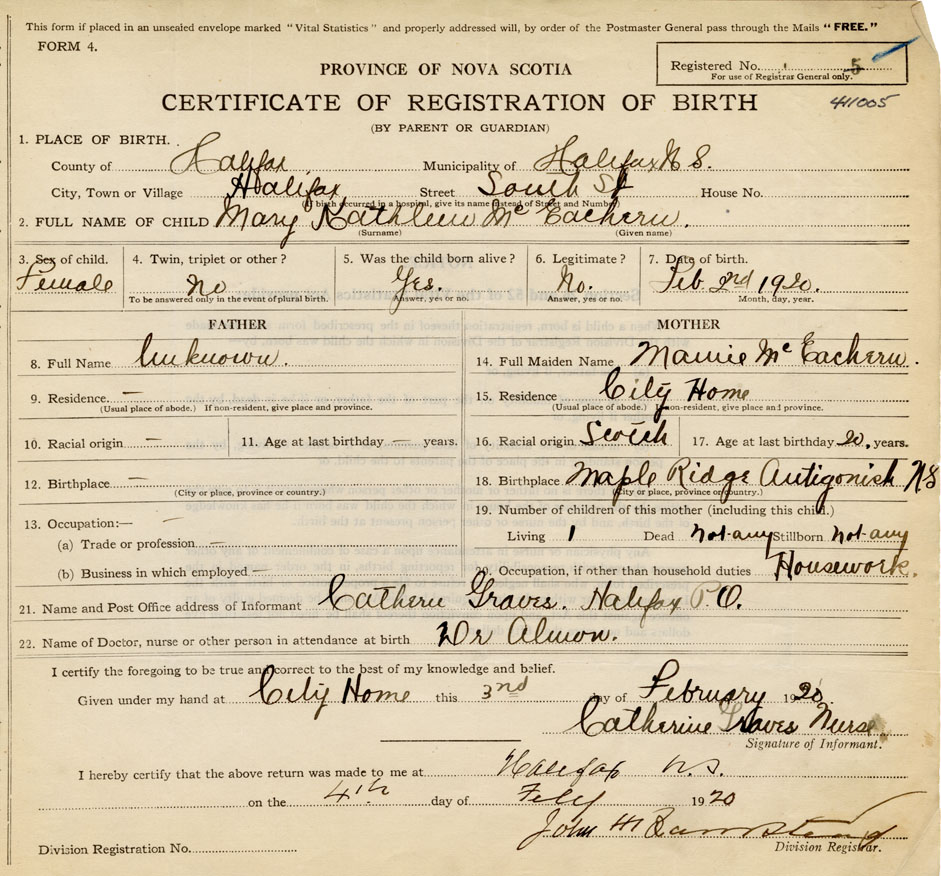 This form if placed in an unsealed envelope marked "Vital Statistics" and properly addressed will, by order of the Postmaster General pass through the Mails "FREE."
FORM 4.
Registered No. 5
For use of Registrar General only.
PROVINCE OF NOVA SCOTIA
CERTIFICATE OF REGISTRATION OF BIRTH 411005
(BY PARENT OR GUARDIAN)
1. PLACE OF BIRTH.
County of Halifax Municipality of Halifax N S.
City, Town or Village Halifax Street South St House No.
(If birth occurred in a hospital, give its name instead of Street and Number)
2. FULL NAME OF CHILD Mary Kathleen McEachern.
(Surname) (Given name)
3. Sex of child. 4. Twin, triplet or other? 5. Was the child born alive? 6. Legitimate? 7. Date of birth.
Female No Yes. No. Feb. 2nd 1920.
To be answered only in the event of plural birth. Answer, yes or no. Answer, yes or no. Month, day, year.
FATHER MOTHER
8. Full Name Unknown. 14. Full Maiden Name Mamie McEachern.
9. Residence. — 15. Residence City Home
(Usual place of abode.) If non-resident, give place and province. (Usual place of abode.) If non-resident, give place and province.
10. Racial origin — 11. Age at last birthday — years. 16. Racial origin Scotch 17. Age at last birthday 20, years.
12. Birthplace — 18. Birthplace Maple Ridge Antigonish N S
(City or place, province or country.) (City or place, province or country.)
13. Occupation:— — 19. Number of children of this mother (including this child.)
(a) Trade or profession — Living 1 Dead not any Stillborn not any
(b) Business in which employed — 20. Occupation, if other than household duties Housework.
21. Name and Post Office address of Informant Cathern Graves. Halifax P.O.
22. Name of Doctor, nurse or other person in attendance at birth Dr Almon.
I certify the foregoing to be true and correct to the best of my knowledge and belief.
Given under my hand at City Home this 3nd day of February 1920.
Catherine Graves Nurse
Signature of Informant.
I hereby certify that the above return was made to me at Halifax N.S.
on the 4th day of Feby 1920
John H
Division Registration No. Division Registrar.